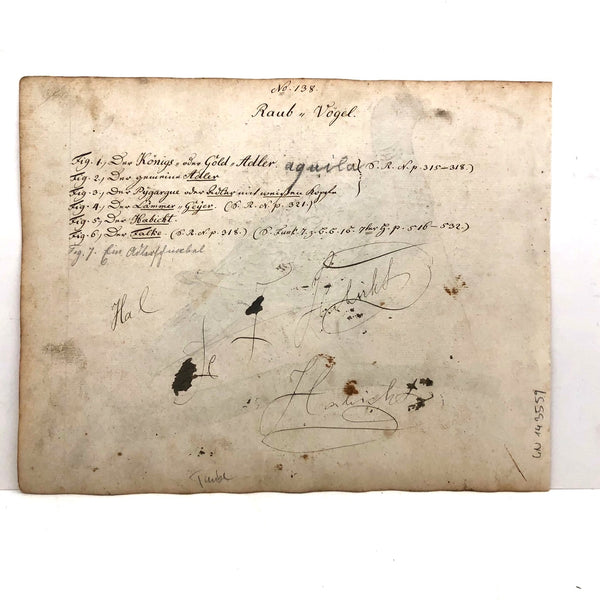 No. 138.
Raub „ Vögel.
Fig. 1, Der Königs „ oder Göld „ Adler. aquila (S. R. N. p. 315–318.)
Fig. 2, Der gemeine Adler
Fig. 3, Der Pÿgargue oder Adler mit weissen Kopfe
Fig. 4, Der Lämmer „ Geÿer. (S. R. N. p. 321.)
Fig. 5, Der Habicht.
Fig. 6, Der Falke. (S. R. N. p. 318.) (S. 7. z. p. 516–532.)
Fig. 7. Ein Adlerschnabel
Hal
Habicht
Habicht
Taube
GN 143559